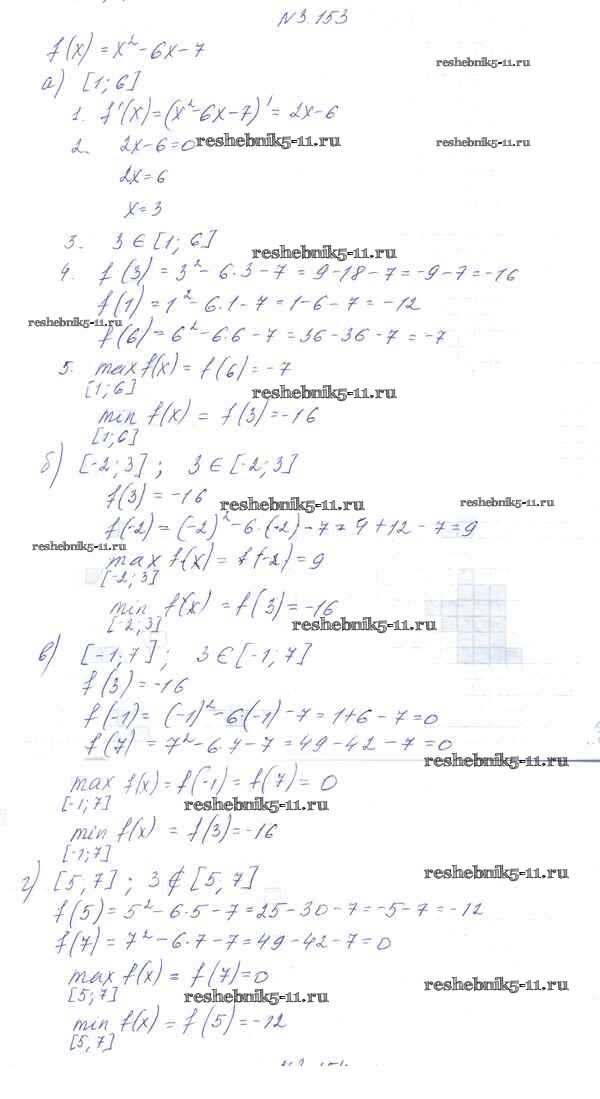 N3.153
f(x) = x² - 6x - 7
reshebnik5-11.ru
а) [1; 6]
1. f'(x) = (x² - 6x - 7)' = 2x - 6
2. 2x - 6 = 0 reshebnik5-11.ru reshebnik5-11.ru
2x = 6
x = 3
3. 3 ∈ [1; 6]
reshebnik5-11.ru
4. f(3) = 3² - 6·3 - 7 = 9 - 18 - 7 = -9 - 7 = -16
f(1) = 1² - 6·1 - 7 = 1 - 6 - 7 = -12
reshebnik5-11.ru
f(6) = 6² - 6·6 - 7 = 36 - 36 - 7 = -7
5. max f(x) = f(6) = -7
[1; 6] reshebnik5-11.ru
min f(x) = f(3) = -16
[1; 6]
б) [-2; 3]; 3 ∈ [-2; 3]
f(3) = -16 reshebnik5-11.ru reshebnik5-11.ru
f(-2) = (-2)² - 6·(-2) - 7 = 4 + 12 - 7 = 9
reshebnik5-11.ru
max f(x) = f(-2) = 9
[-2; 3]
min f(x) = f(3) = -16
[-2; 3] reshebnik5-11.ru
в) [-1; 7]; 3 ∈ [-1; 7]
f(3) = -16
f(-1) = (-1)² - 6·(-1) - 7 = 1 + 6 - 7 = 0
f(7) = 7² - 6·7 - 7 = 49 - 42 - 7 = 0
reshebnik5-11.ru
max f(x) = f(-1) = f(7) = 0
[-1; 7] reshebnik5-11.ru
min f(x) = f(3) = -16
[-1; 7]
г) [5, 7]; 3 ∉ [5, 7] reshebnik5-11.ru
f(5) = 5² - 6·5 - 7 = 25 - 30 - 7 = -5 - 7 = -12
f(7) = 7² - 6·7 - 7 = 49 - 42 - 7 = 0
max f(x) = f(7) = 0 reshebnik5-11.ru
[5; 7] reshebnik5-11.ru
min f(x) = f(5) = -12
[5, 7]